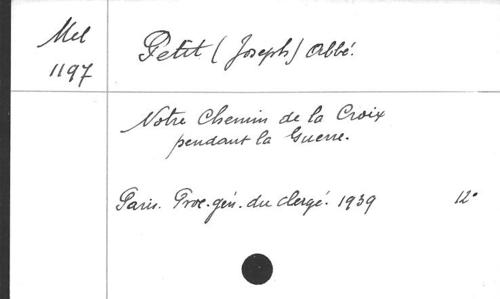 Mel
1197
Petit (Joseph) Abbé.
Notre Chemin de la Croix
pendant la Guerre.
Paris. Proc. gén. du clergé. 1939 12°